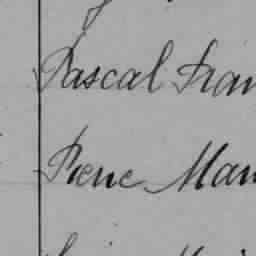 Pascal Fran
Pierre Mar